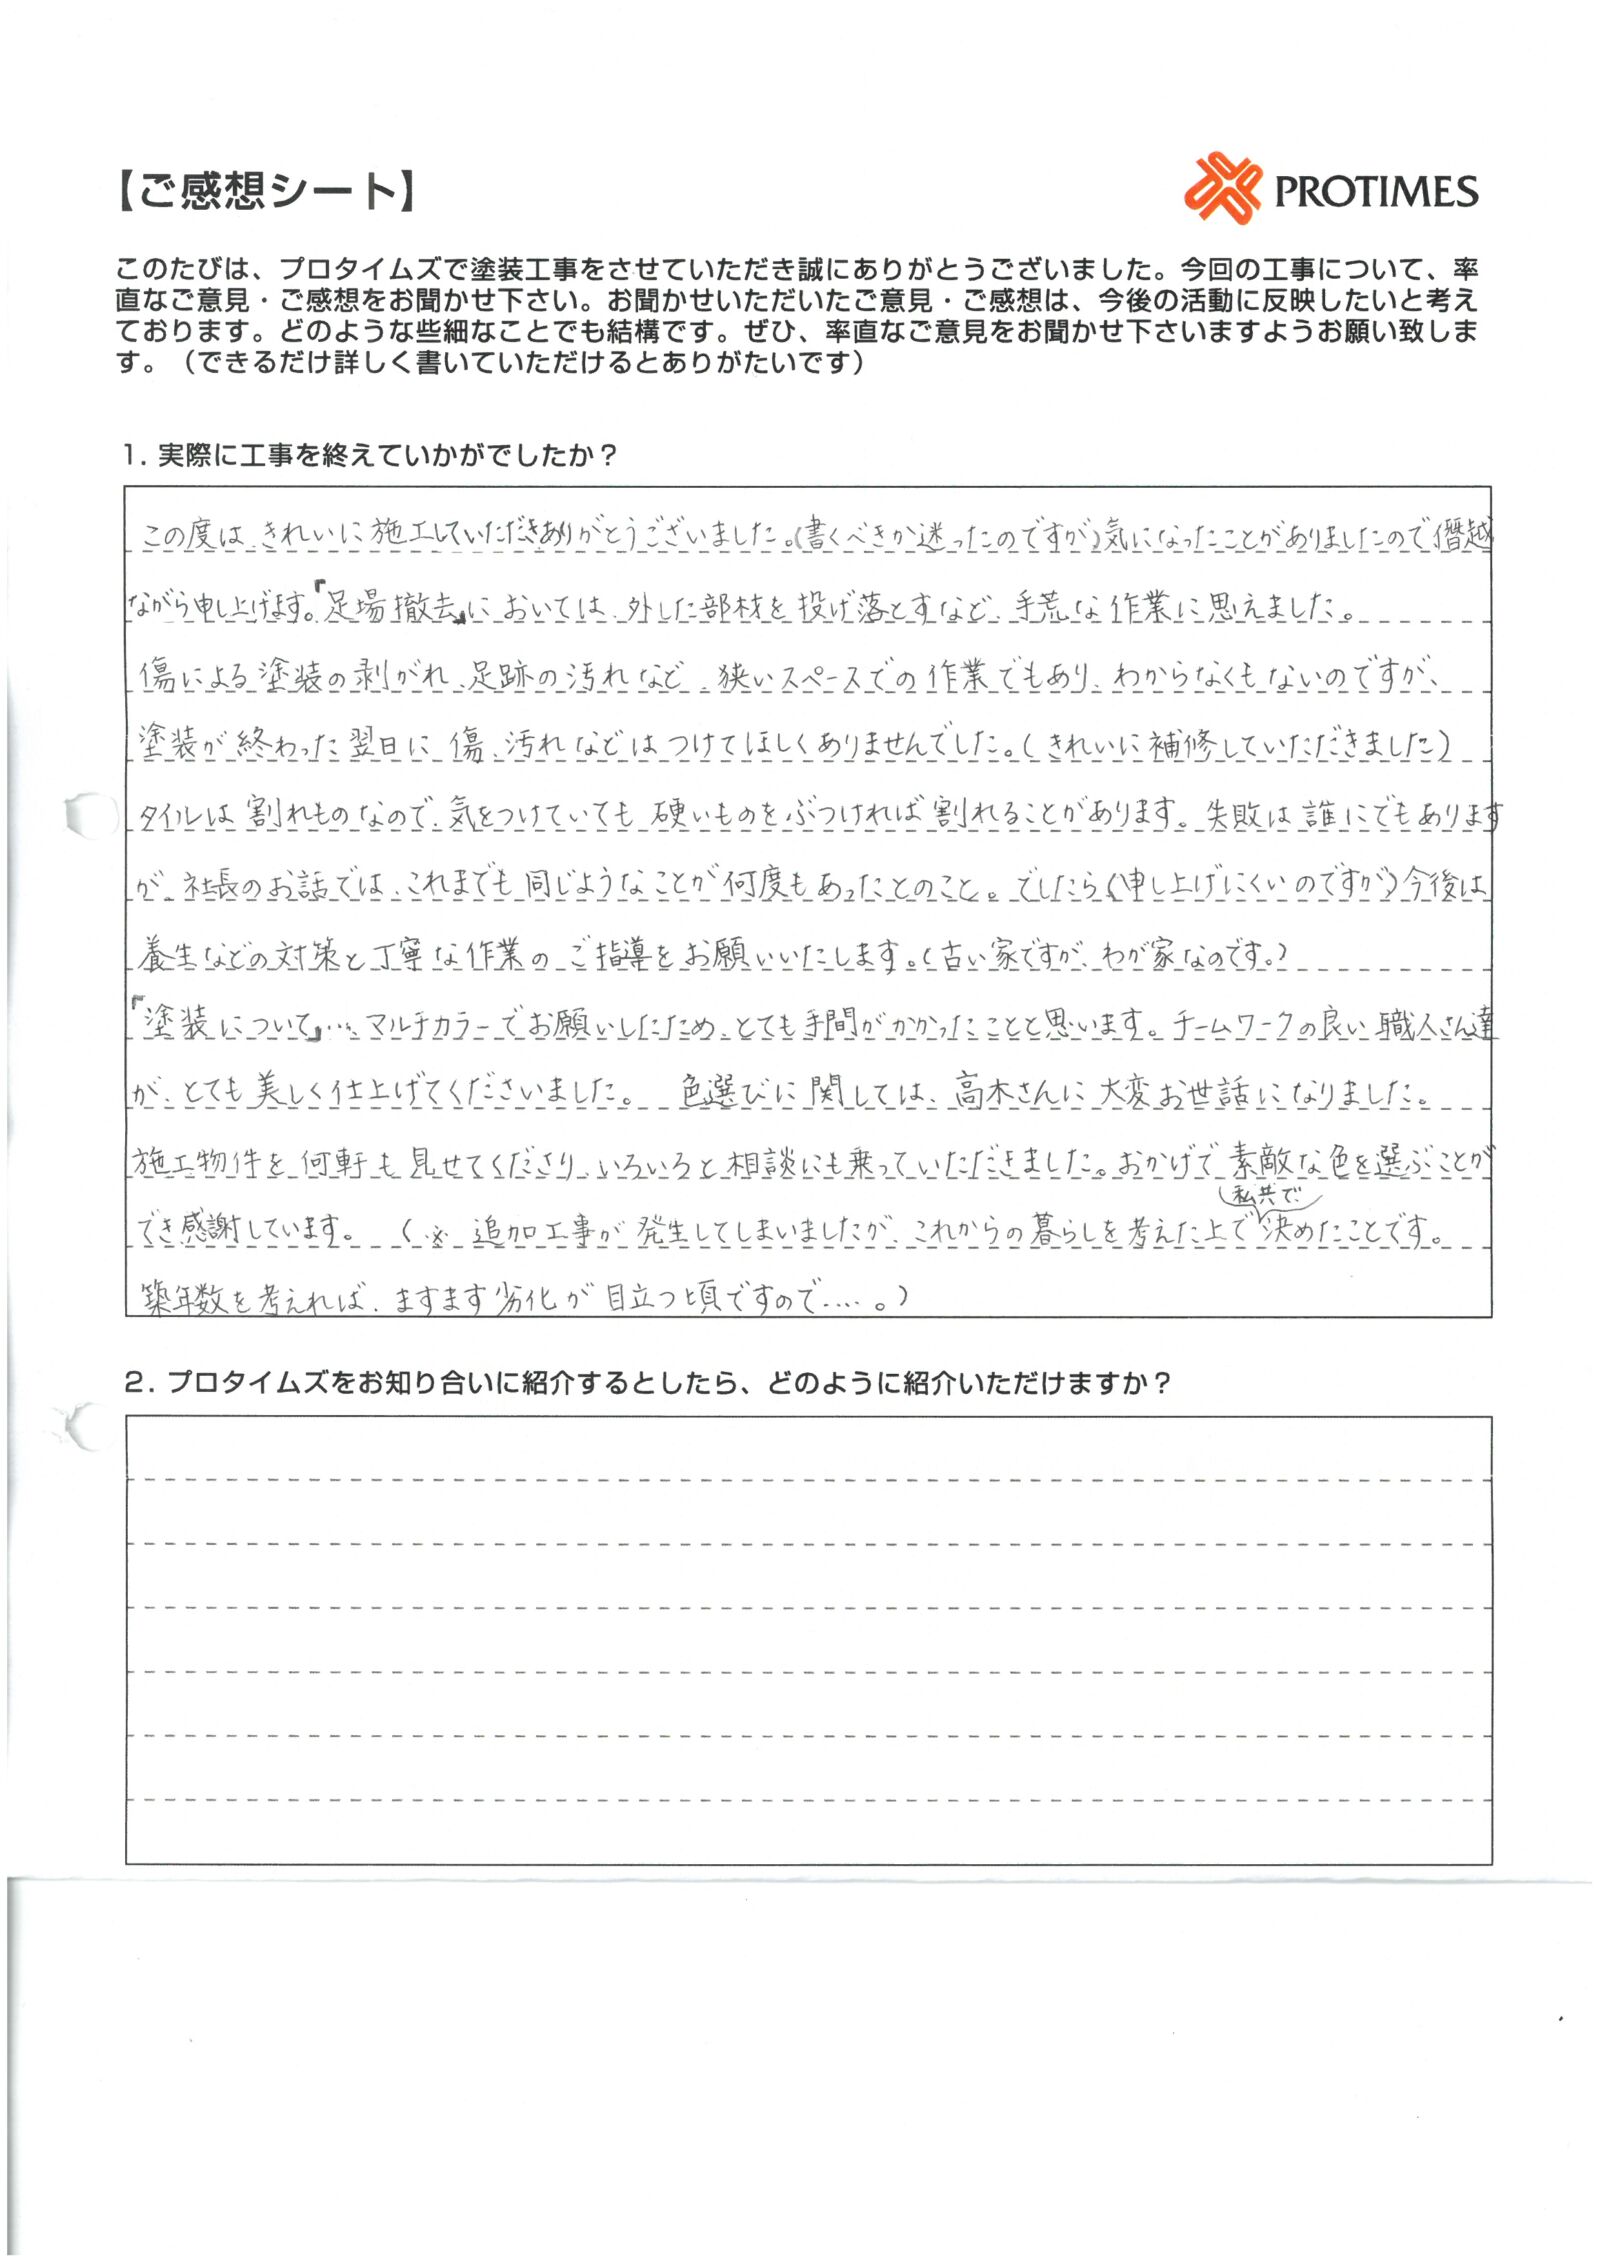 【ご感想シート】
PROTIMES
このたびは、プロタイムズで塗装工事をさせていただき誠にありがとうございました。今回の工事について、率
直なご意見・ご感想をお聞かせ下さい。お聞かせいただいたご意見・ご感想は、今後の活動に反映したいと考え
ております。どのような些細なことでも結構です。ぜひ、率直なご意見をお聞かせ下さいますようお願い致しま
す。（できるだけ詳しく書いていただけるとありがたいです）
1. 実際に工事を終えていかがでしたか？
この度は、きれいに施工していただきありがとうございました。(書くべきか迷ったのですが)気になったことがありましたので僭越
ながら申し上げます。『足場撤去』においては、外した部材を投げ落とすなど、手荒な作業に思えました。
傷による塗装の剥がれ、足跡の汚れなど、狭いスペースでの作業でもあり、わからなくもないのですが、
塗装が終わった翌日に傷、汚れなどはつけてほしくありませんでした。(きれいに補修していただきました)
タイルは割れものなので、気をつけていても硬いものをぶつければ割れることがあります。失敗は誰にでもあります
が、社長のお話では、これまでも同じようなことが何度もあったとのこと。でしたら(申し上げにくいのですが)今後は
養生などの対策と丁寧な作業のご指導をお願いいたします。(古い家ですが、わが家なのです。)
『塗装について』… マルチカラーでお願いしたため、とても手間がかかったことと思います。チームワークの良い職人さん達
が、とても美しく仕上げてくださいました。 色選びに関しては、高木さんに大変お世話になりました。
施工物件を何軒も見せてくださり、いろいろと相談にも乗っていただきました。おかげで素敵な色を選ぶことが
でき感謝しています。 (※ 追加工事が発生してしまいましたが、これからの暮らしを考えた上で(私共で)決めたことです。
築年数を考えれば、ますます劣化が目立つ頃ですので……。)
2. プロタイムズをお知り合いに紹介するとしたら、どのように紹介いただけますか？